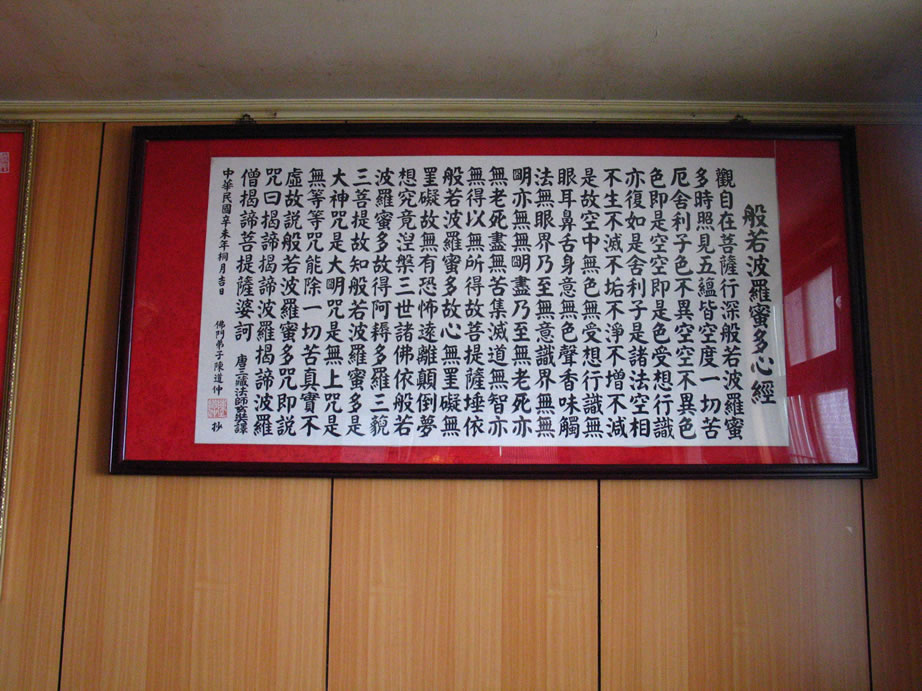 般若波羅蜜多心經
觀自在菩薩行深般若波羅蜜
多時照見五蘊皆空度一切苦
厄舍利子色不異空空不異色
色即是空空即是色受想行識
亦復如是舍利子是諸法空相
不生不滅不垢不淨不增不減
是故空中無色無受想行識無
眼耳鼻舌身意無色聲香味觸
法無眼界乃至無意識界無無
明亦無無明盡乃至無老死亦
無老死盡無苦集滅道無智亦
無得以無所得故菩提薩埵依
般若波羅蜜多故心無罣礙無
罣礙故無有恐怖遠離顛倒夢
想究竟涅槃三世諸佛依般若
波羅蜜多故得阿耨多羅三藐
三菩提故知般若波羅蜜多是
大神咒是大明咒是無上咒是
無等等咒能除一切苦真實不
虛故說般若波羅蜜多咒即說
咒曰揭諦揭諦波羅揭諦波羅
僧揭諦菩提薩婆訶
唐三藏法師玄奘譯
中華民國辛未年桐月吉日 佛門弟子陳道仲 抄